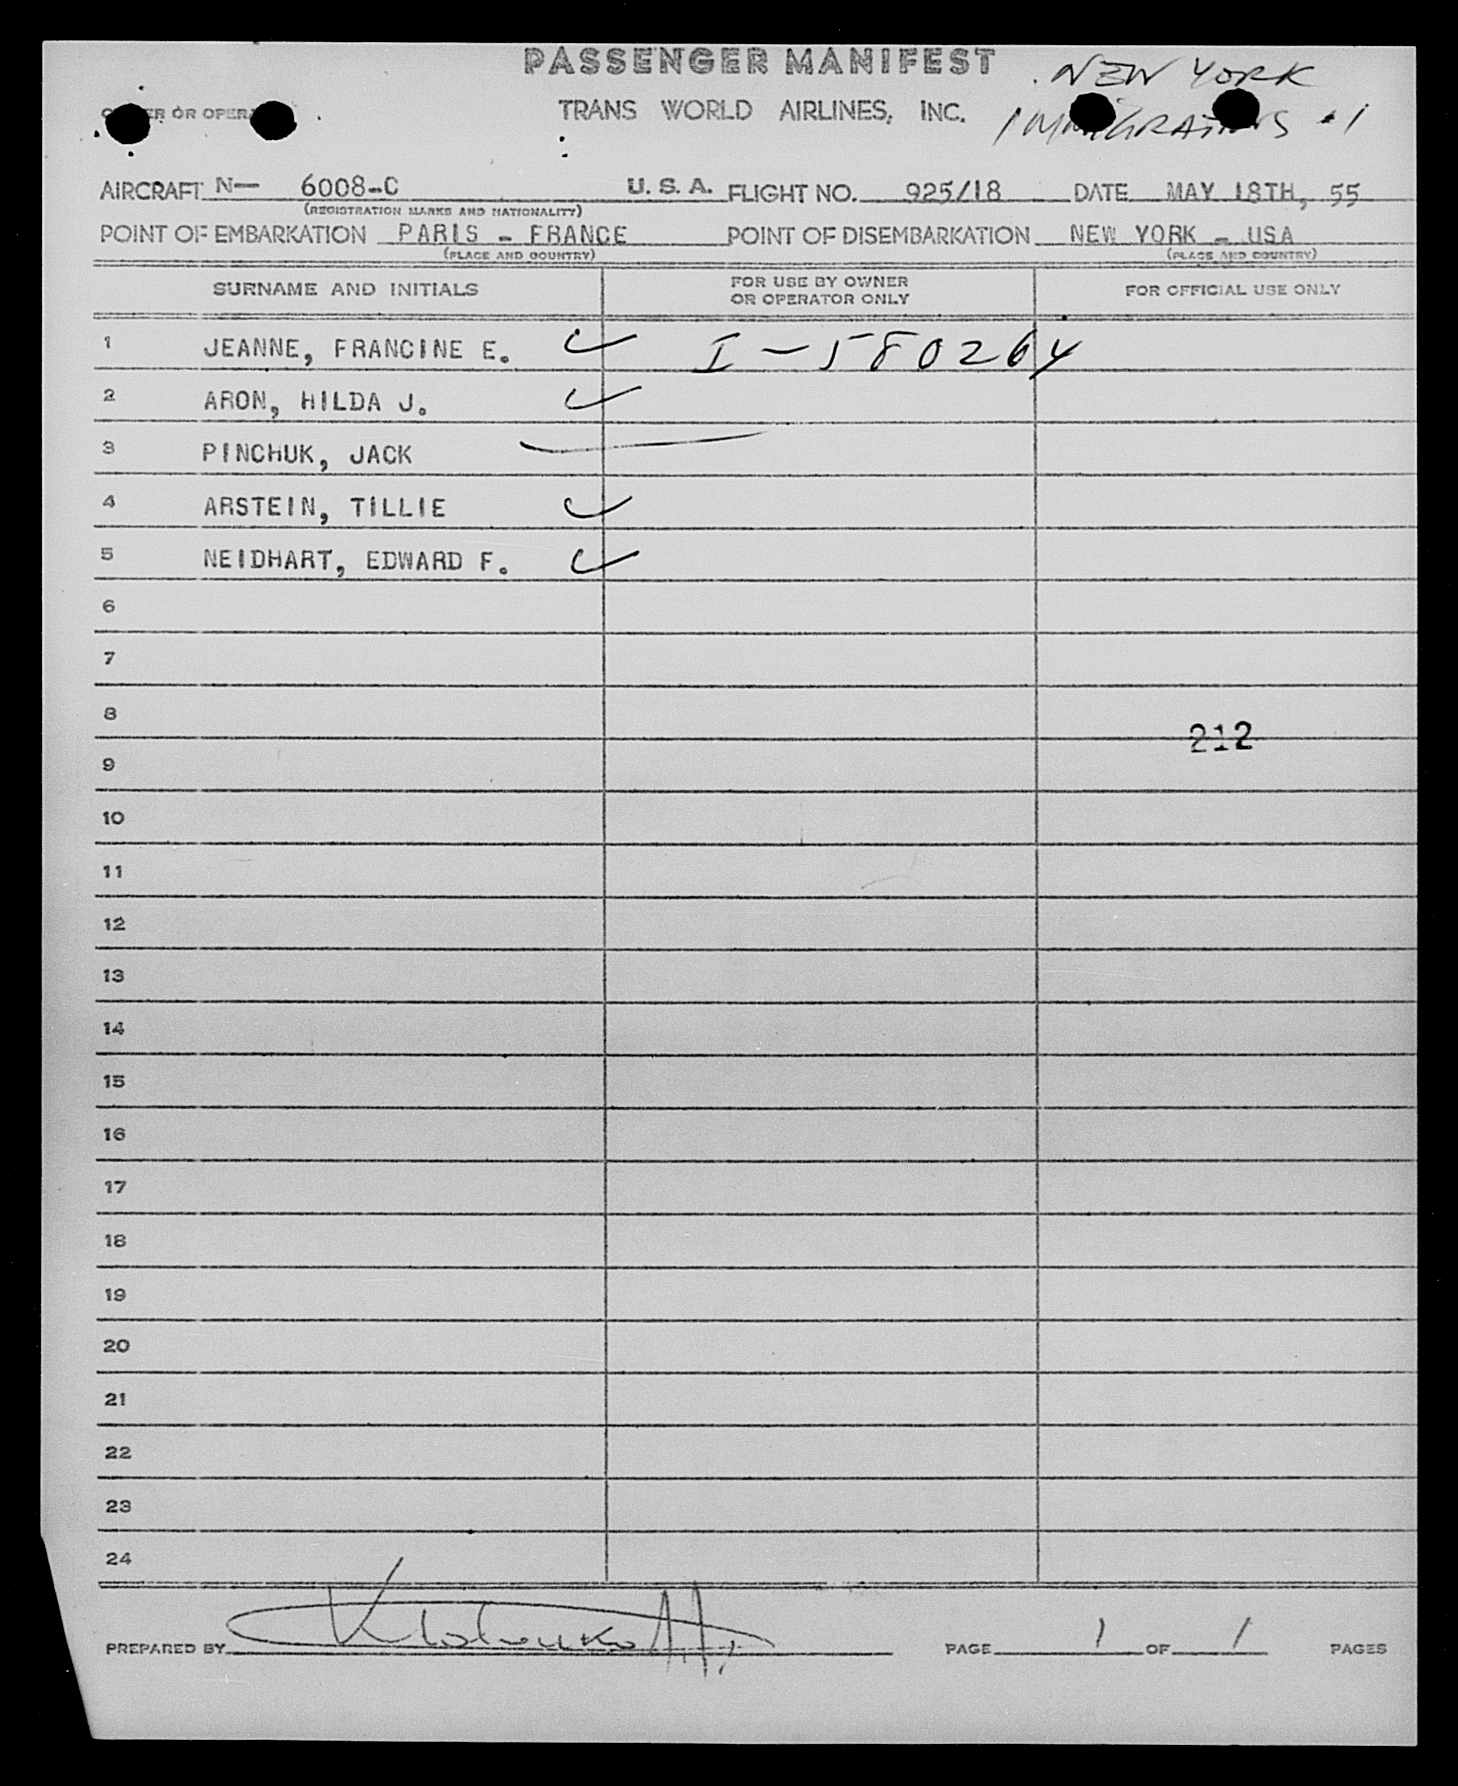 PASSENGER MANIFEST
NEW YORK
OWNER OR OPERATOR
TRANS WORLD AIRLINES, INC.
IMMIGRATIONS - 1
AIRCRAFT N— 6008-C U. S. A. FLIGHT NO. 925/18 DATE MAY 18TH, 55
(REGISTRATION MARKS AND NATIONALITY)
POINT OF EMBARKATION PARIS - FRANCE POINT OF DISEMBARKATION NEW YORK - USA
(PLACE AND COUNTRY) (PLACE AND COUNTRY)
SURNAME AND INITIALS FOR USE BY OWNER OR OPERATOR ONLY FOR OFFICIAL USE ONLY
1 JEANNE, FRANCINE E. I-580264
2 ARON, HILDA J.
3 PINCHUK, JACK
4 ARSTEIN, TILLIE
5 NEIDHART, EDWARD F.
6
7
8
212
9
10
11
12
13
14
15
16
17
18
19
20
21
22
23
24
PREPARED BY PAGE 1 OF 1 PAGES